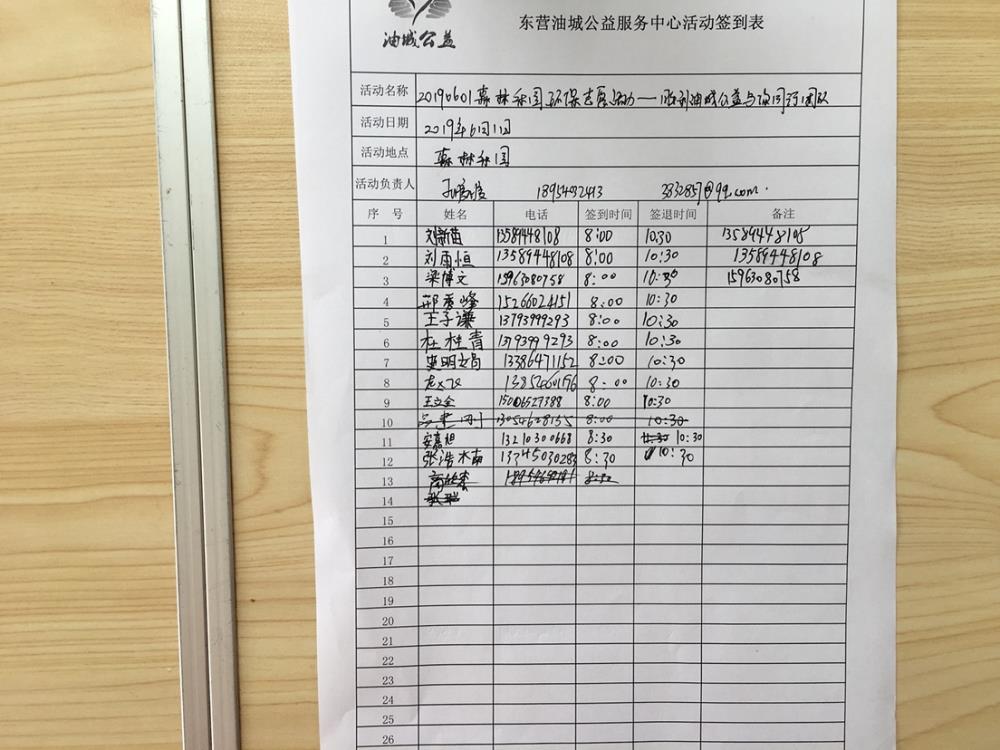 油城公益
东营油城公益服务中心活动签到表
活动名称 20190601森林公园环保志愿活动——胜利油城公益与
活动日期 2019年6月1日
活动地点 森林公园
活动负责人 18954932413 2832857@qq.com.
序 号 姓名 电话 签到时间 签退时间 备注
1 刘新苗 13589448108 8:00 10:30 13589448108
2 刘雨恒 13589448108 8:00 10:30 13589448108
3 梁博文 15963080758 8:00 10:30 15963080758
4 邢秀峰 15266024151 8:00 10:30
5 王子谦 13793999293 8:00 10:30
6 杜桂青 13793999293 8:00 10:30
7 13386471152 8:00 10:30
8 8:00 10:30
9 王立全 15006527388 8:00 10:30
10 13054628155 8:00 10:30
11 安嘉旭 13210300668 8:30 10:30
12 张浩楠 13745030283 8:30 10:30
13
14
15
16
17
18
19
20
21
22
23
24
25
26